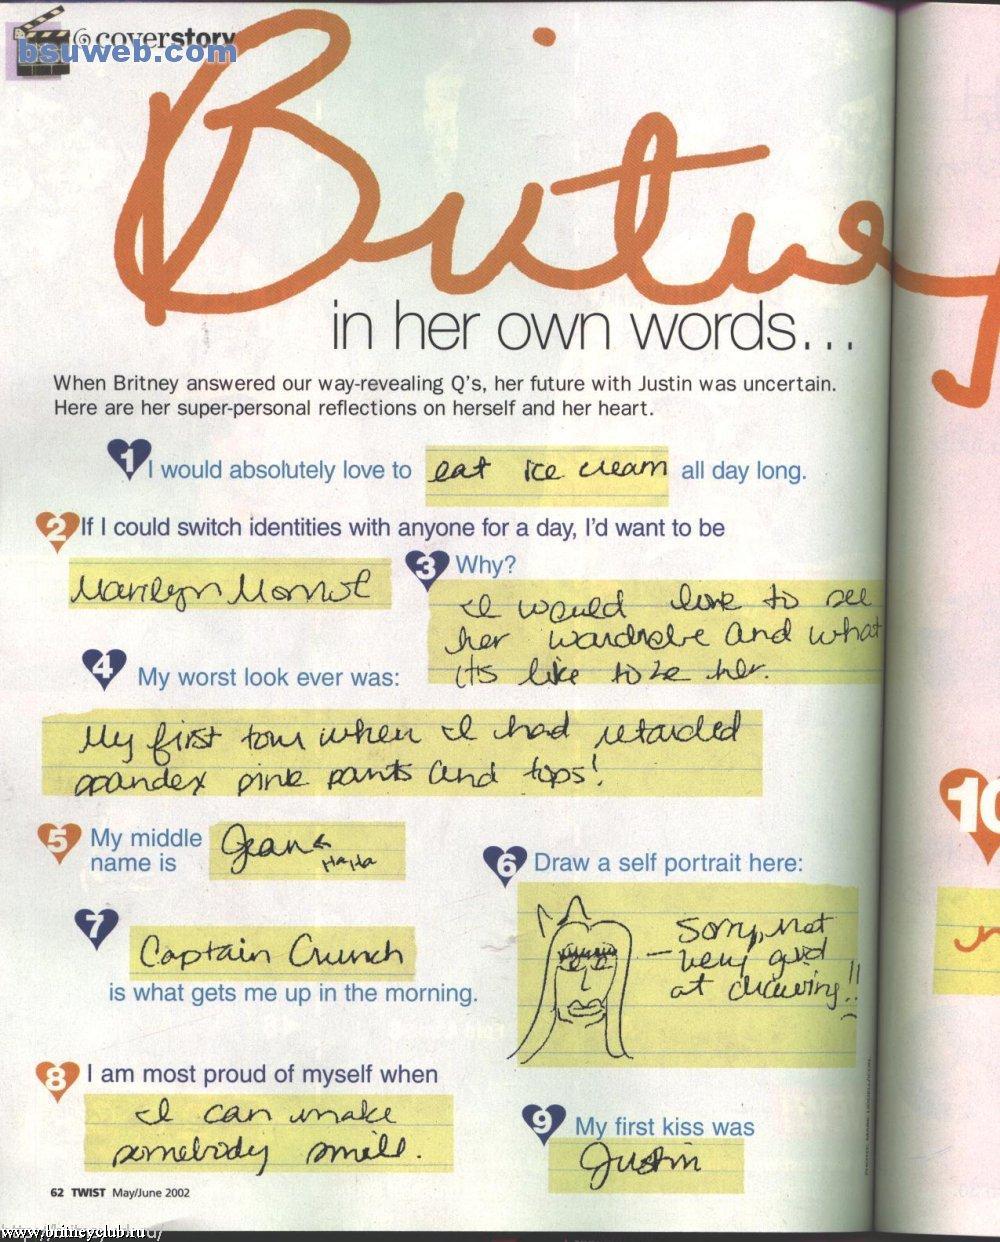 coverstory
bsuweb.com
Britney
in her own words...
When Britney answered our way-revealing Q's, her future with Justin was uncertain.
Here are her super-personal reflections on herself and her heart.
1 I would absolutely love to eat ice cream all day long.
2 If I could switch identities with anyone for a day, I'd want to be
Marilyn Monroe
3 Why?
I would love to see
her wardrobe and what
it's like to be her.
4 My worst look ever was:
My first tour when I had retarded
spandex pink pants and tops!
5 My middle
name is Jean
HaHa
6 Draw a self portrait here:
Sorry, not
very good
at drawing!!
7 Captain Crunch
is what gets me up in the morning.
8 I am most proud of myself when
I can make
somebody smile.
9 My first kiss was
Justin
10
62 TWIST May/June 2002
www.britneyclub.ru